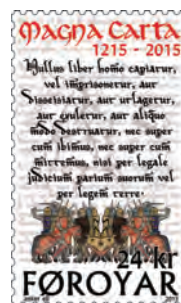 Magna Carta
1215 - 2015
Nullus liber homo capiatur,
vel imprisonetur, aut
disseisiatur, aut utlagetur,
aut exuletur, aut aliquo
modo destruatur, nec super
eum ibimus, nec super eum
mittemus, nisi per legale
judicium parium suorum vel
per legem terre.
24 kr
FØROYAR
2015